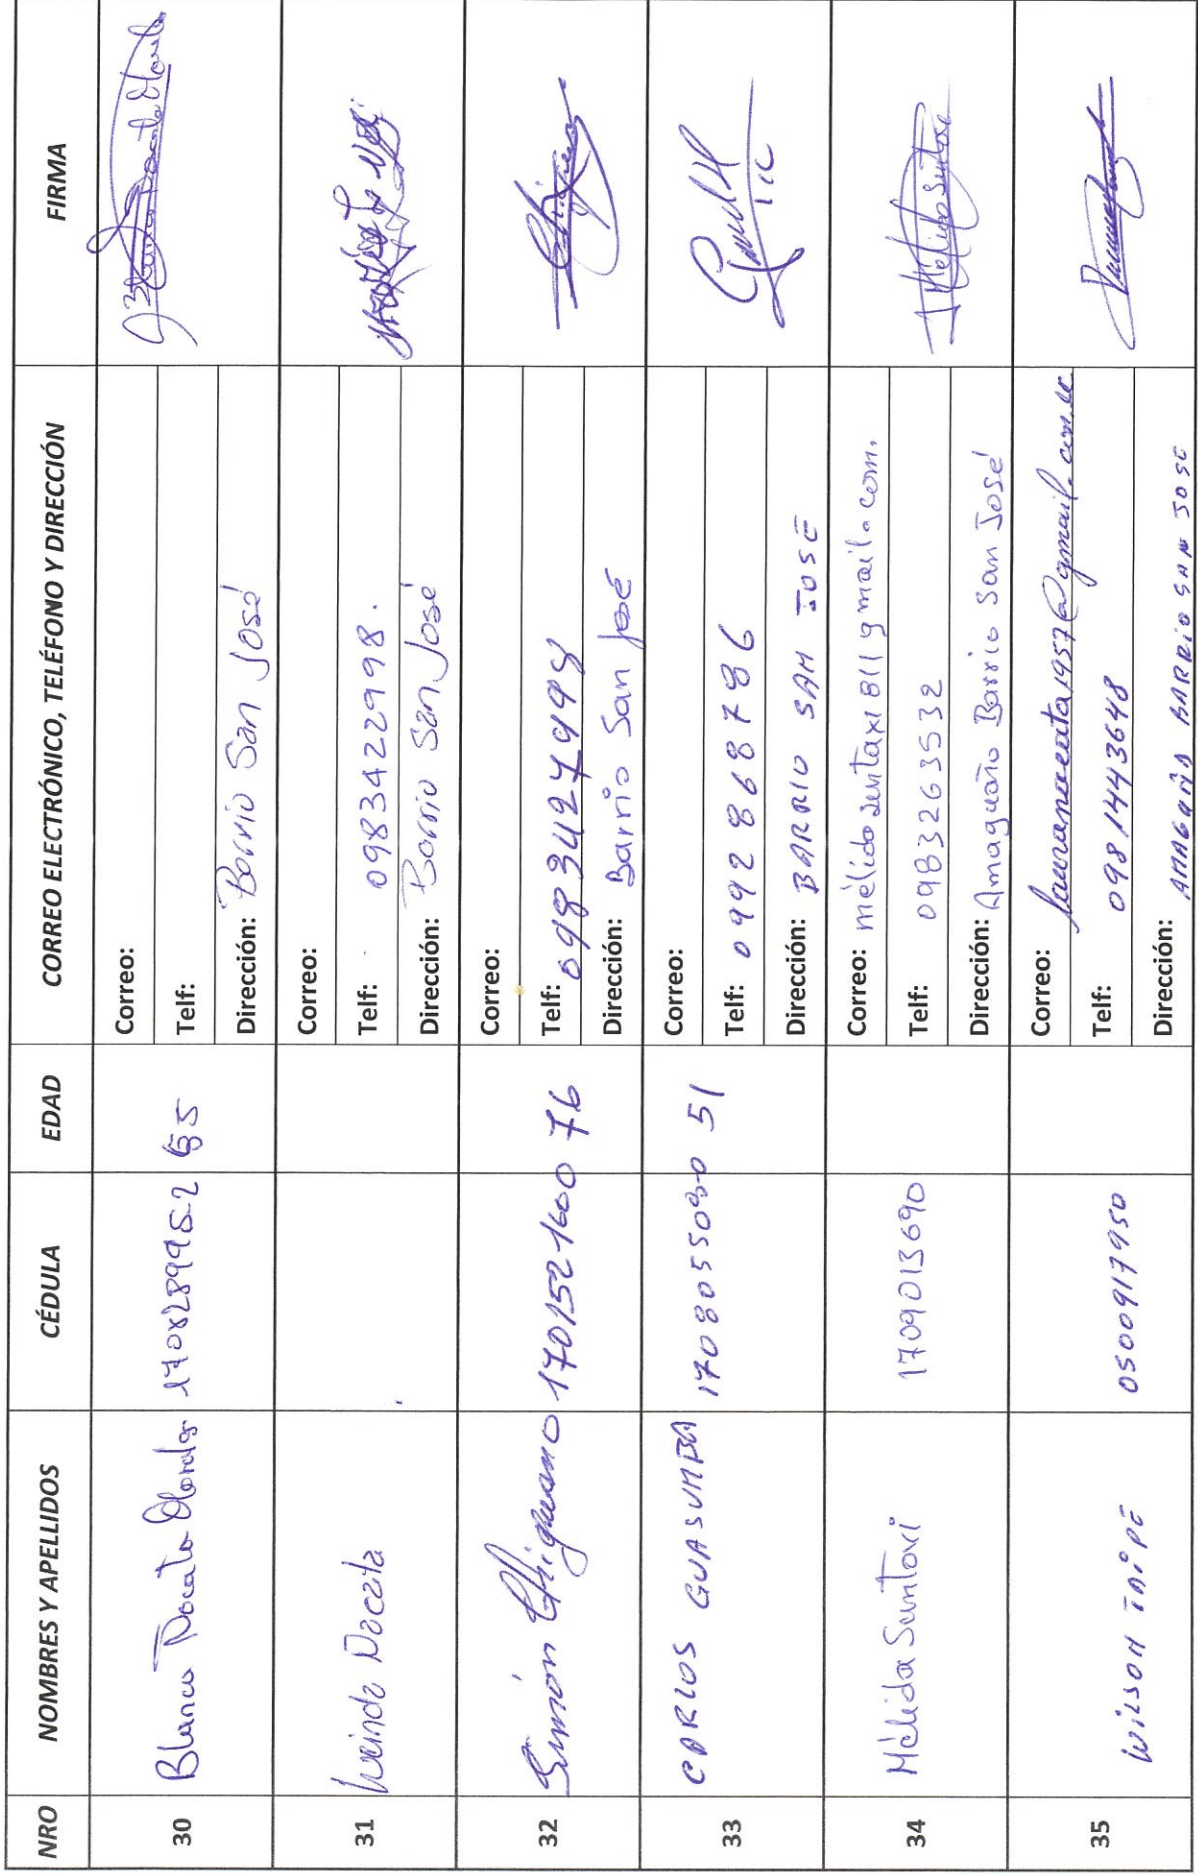 NRO NOMBRES Y APELLIDOS CÉDULA EDAD CORREO ELECTRÓNICO, TELÉFONO Y DIRECCIÓN FIRMA
30 Blanca 65
Correo:
Telf:
Dirección: Barrio San José
31 Lucinda Nacata
Correo:
Telf: 0983422998.
Dirección: Barrio San José
32 Simón Chiguano 1701521600 76
Correo:
Telf:
Dirección: Barrio San José
33 CARLOS GUASUMBA 51
Correo:
Telf: 0992868786
Dirección: BARRIO SAN JOSÉ
34 Mélida Suntaxi 1709013690
Correo: mélidasuntaxi811gmail.com.
Telf: 0983263532
Dirección: Amaguaño Barrio San José
35 WILSON TAIPE 0500917950
Correo:
Telf: 0981443648
Dirección: AMAGUAÑA BARRIO SAN JOSE